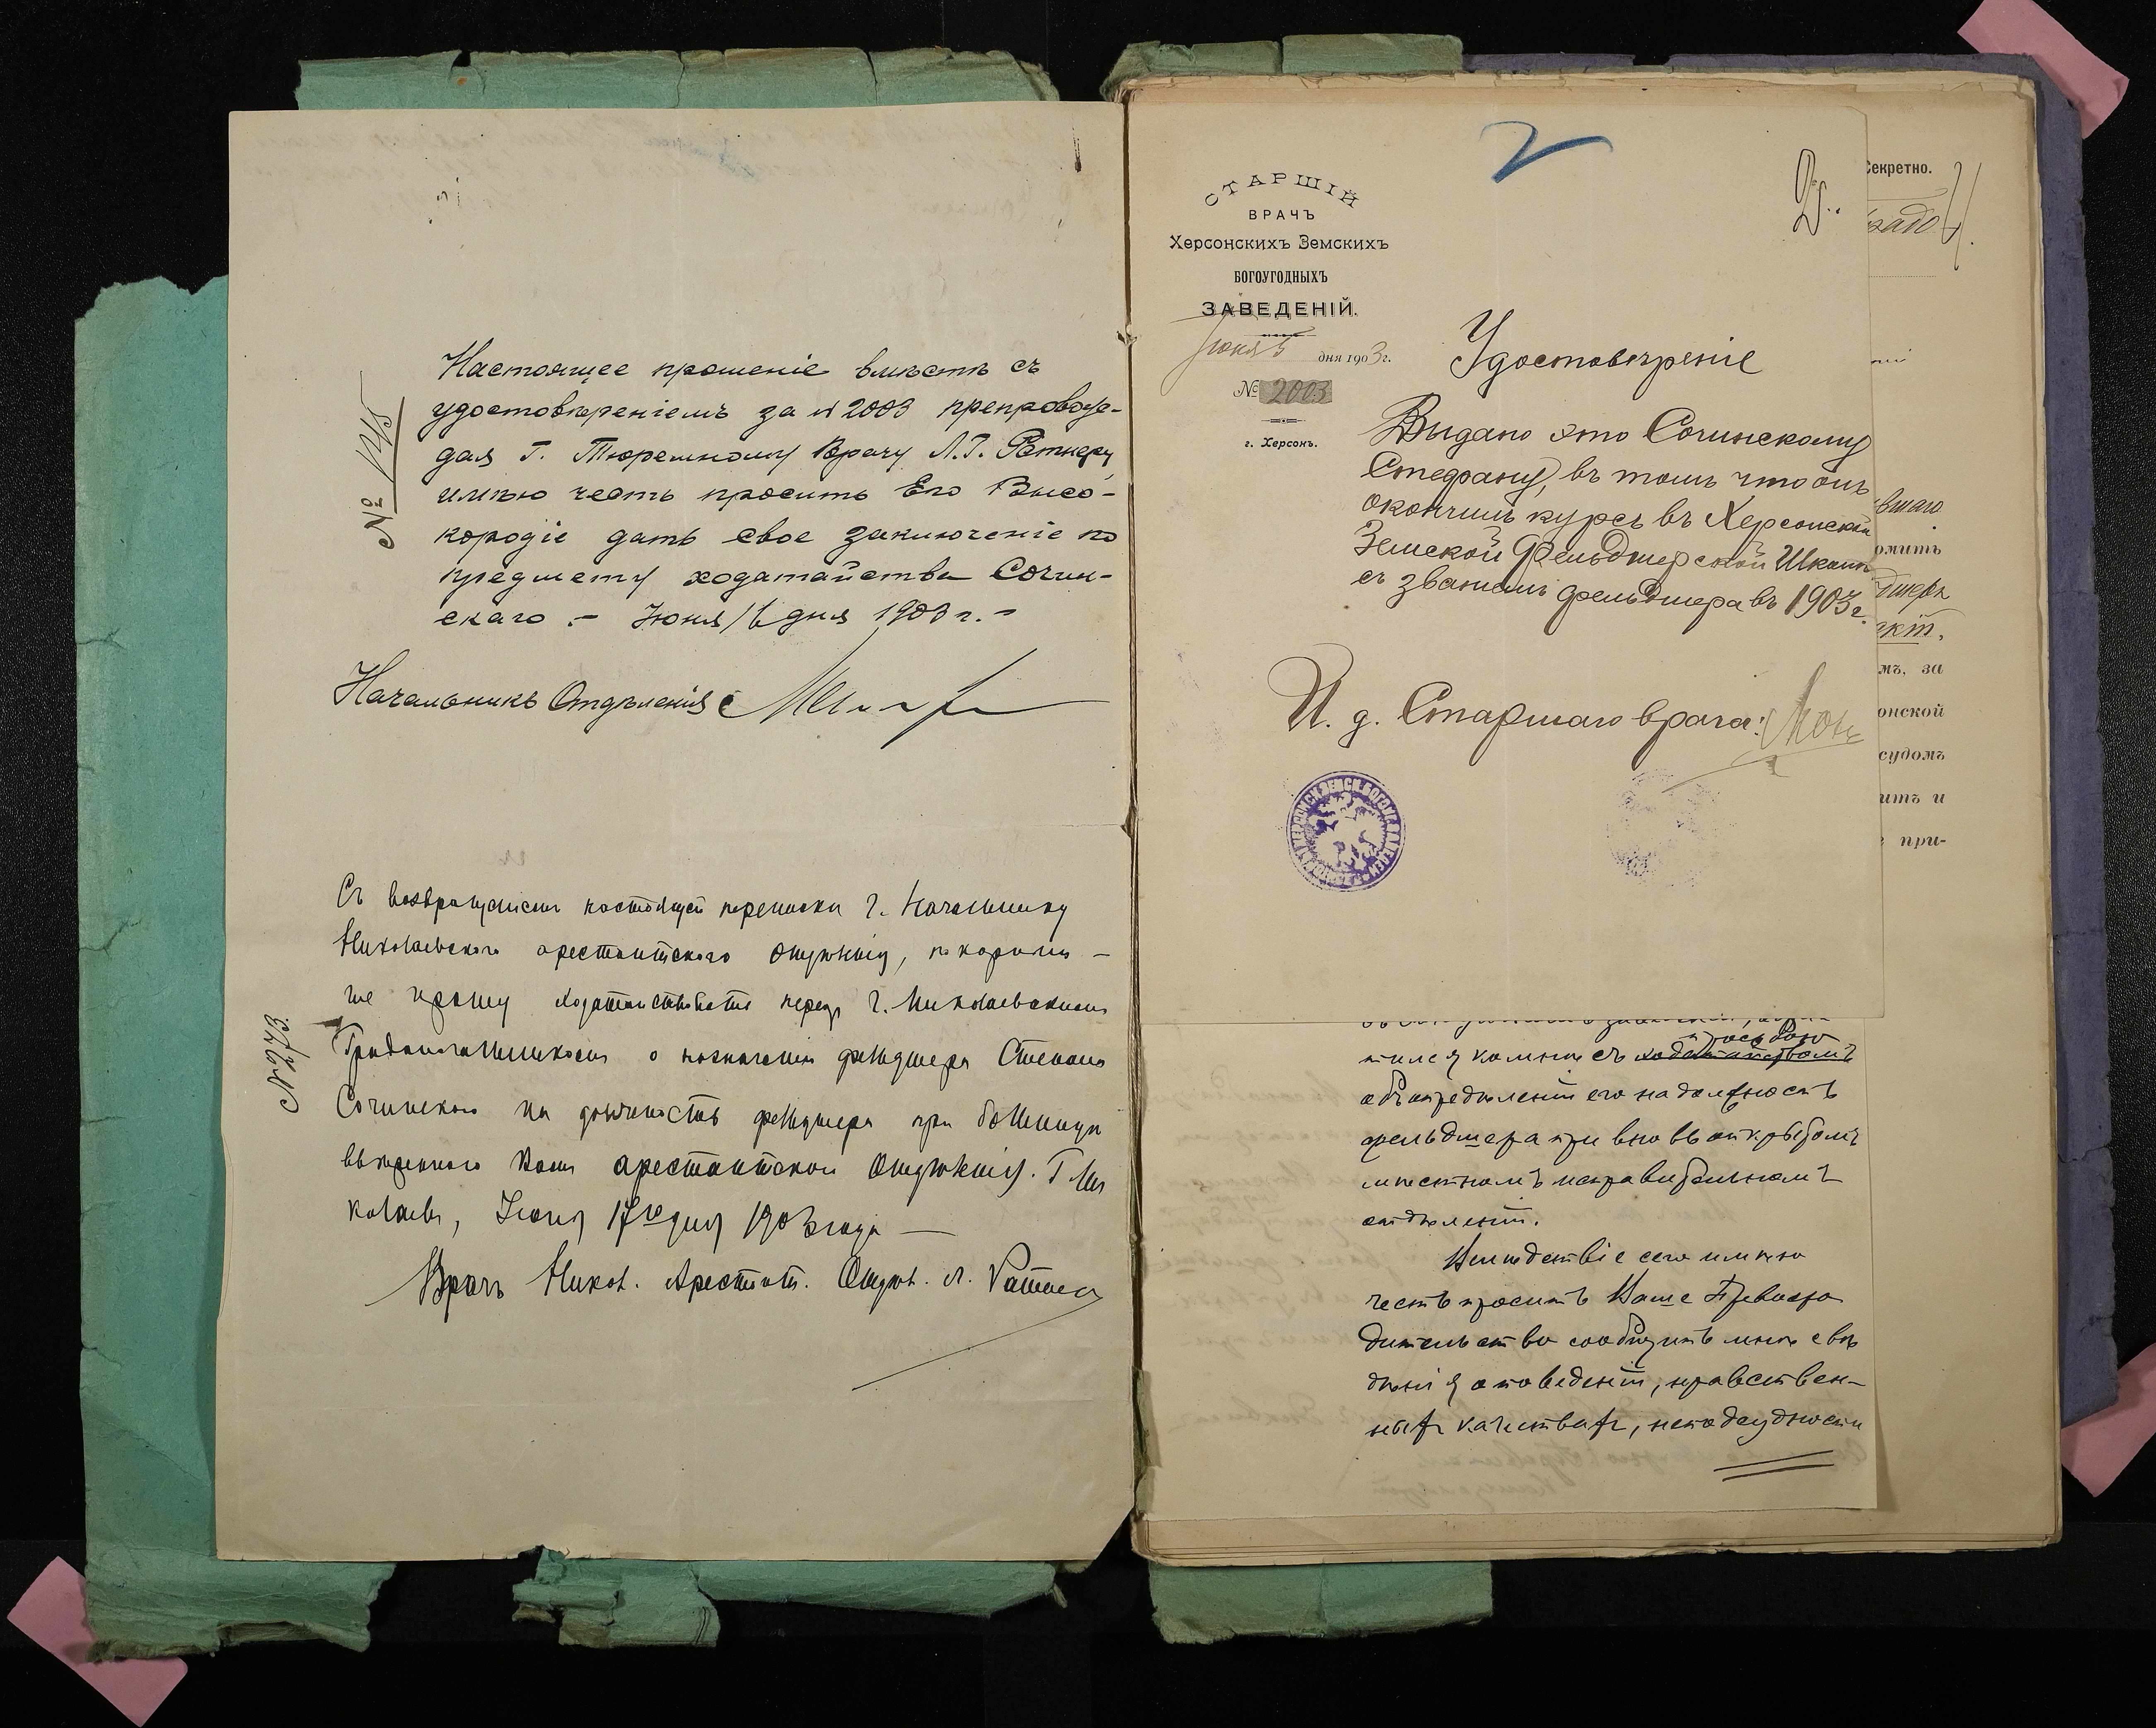 Настоящее прошеніе вмѣстѣ съ
удостовѣреніемъ за № 2003 препровож-
дая Г. Тюремному Врачу Л. Г. Ратнеру,
имѣю честь просить Его Высо-
кородіе дать свое заключеніе по
предмету ходатайства Сочин-
скаго. – Іюня 16 дня 1903 г. –
Начальникъ Отдѣленія
№
Съ возвращеніемъ настоящей переписки Г. Начальнику
Николаевскаго арестантскаго отдѣленія, покорнѣй-
ше прошу ходатайствовать передъ Г. Николаевскимъ
Градоначальникомъ о назначеніи фельдшера Степана
Сочинскаго на должность фельдшера при больницѣ
ввѣреннаго Вамъ арестантскаго отдѣленія. Г. Ни
колаевъ, Іюня 17го дня 1903 года —
Врачъ Никол. Арестант. Отдѣл. Л. Ратнеръ
№ 273.
2
СТАРШІЙ
ВРАЧЪ
Херсонскихъ Земскихъ
БОГОУГОДНЫХЪ
ЗАВЕДЕНІЙ.
Іюня 5 дня 1903 г.
№ 2003
г. Херсонъ.
Удостовѣреніе
Выдано это Сочинскому
Стефану, въ томъ что онъ
окончилъ курсъ въ Херсонской
Земской Фельдшерской Школѣ
съ званіемъ фельдшера въ 1903 г.
И. д. Старшаго врача:
просьбою
тился ко мнѣ съ ходатайствомъ
объ опредѣленіи его на должность
фельдшера при вновь открытомъ
мѣстномъ исправительномъ
отдѣленіи.
Вслѣдствіе сего имѣю
честь просить Ваше Превосхо
дительство сообщить мнѣ свѣ
дѣнія о поведеніи, нравствен-
ныхъ качествахъ, неподсудности
Секретно.
4.
вшаго
омить
дшера
мъ, за
онской
судомъ
итъ и
при-